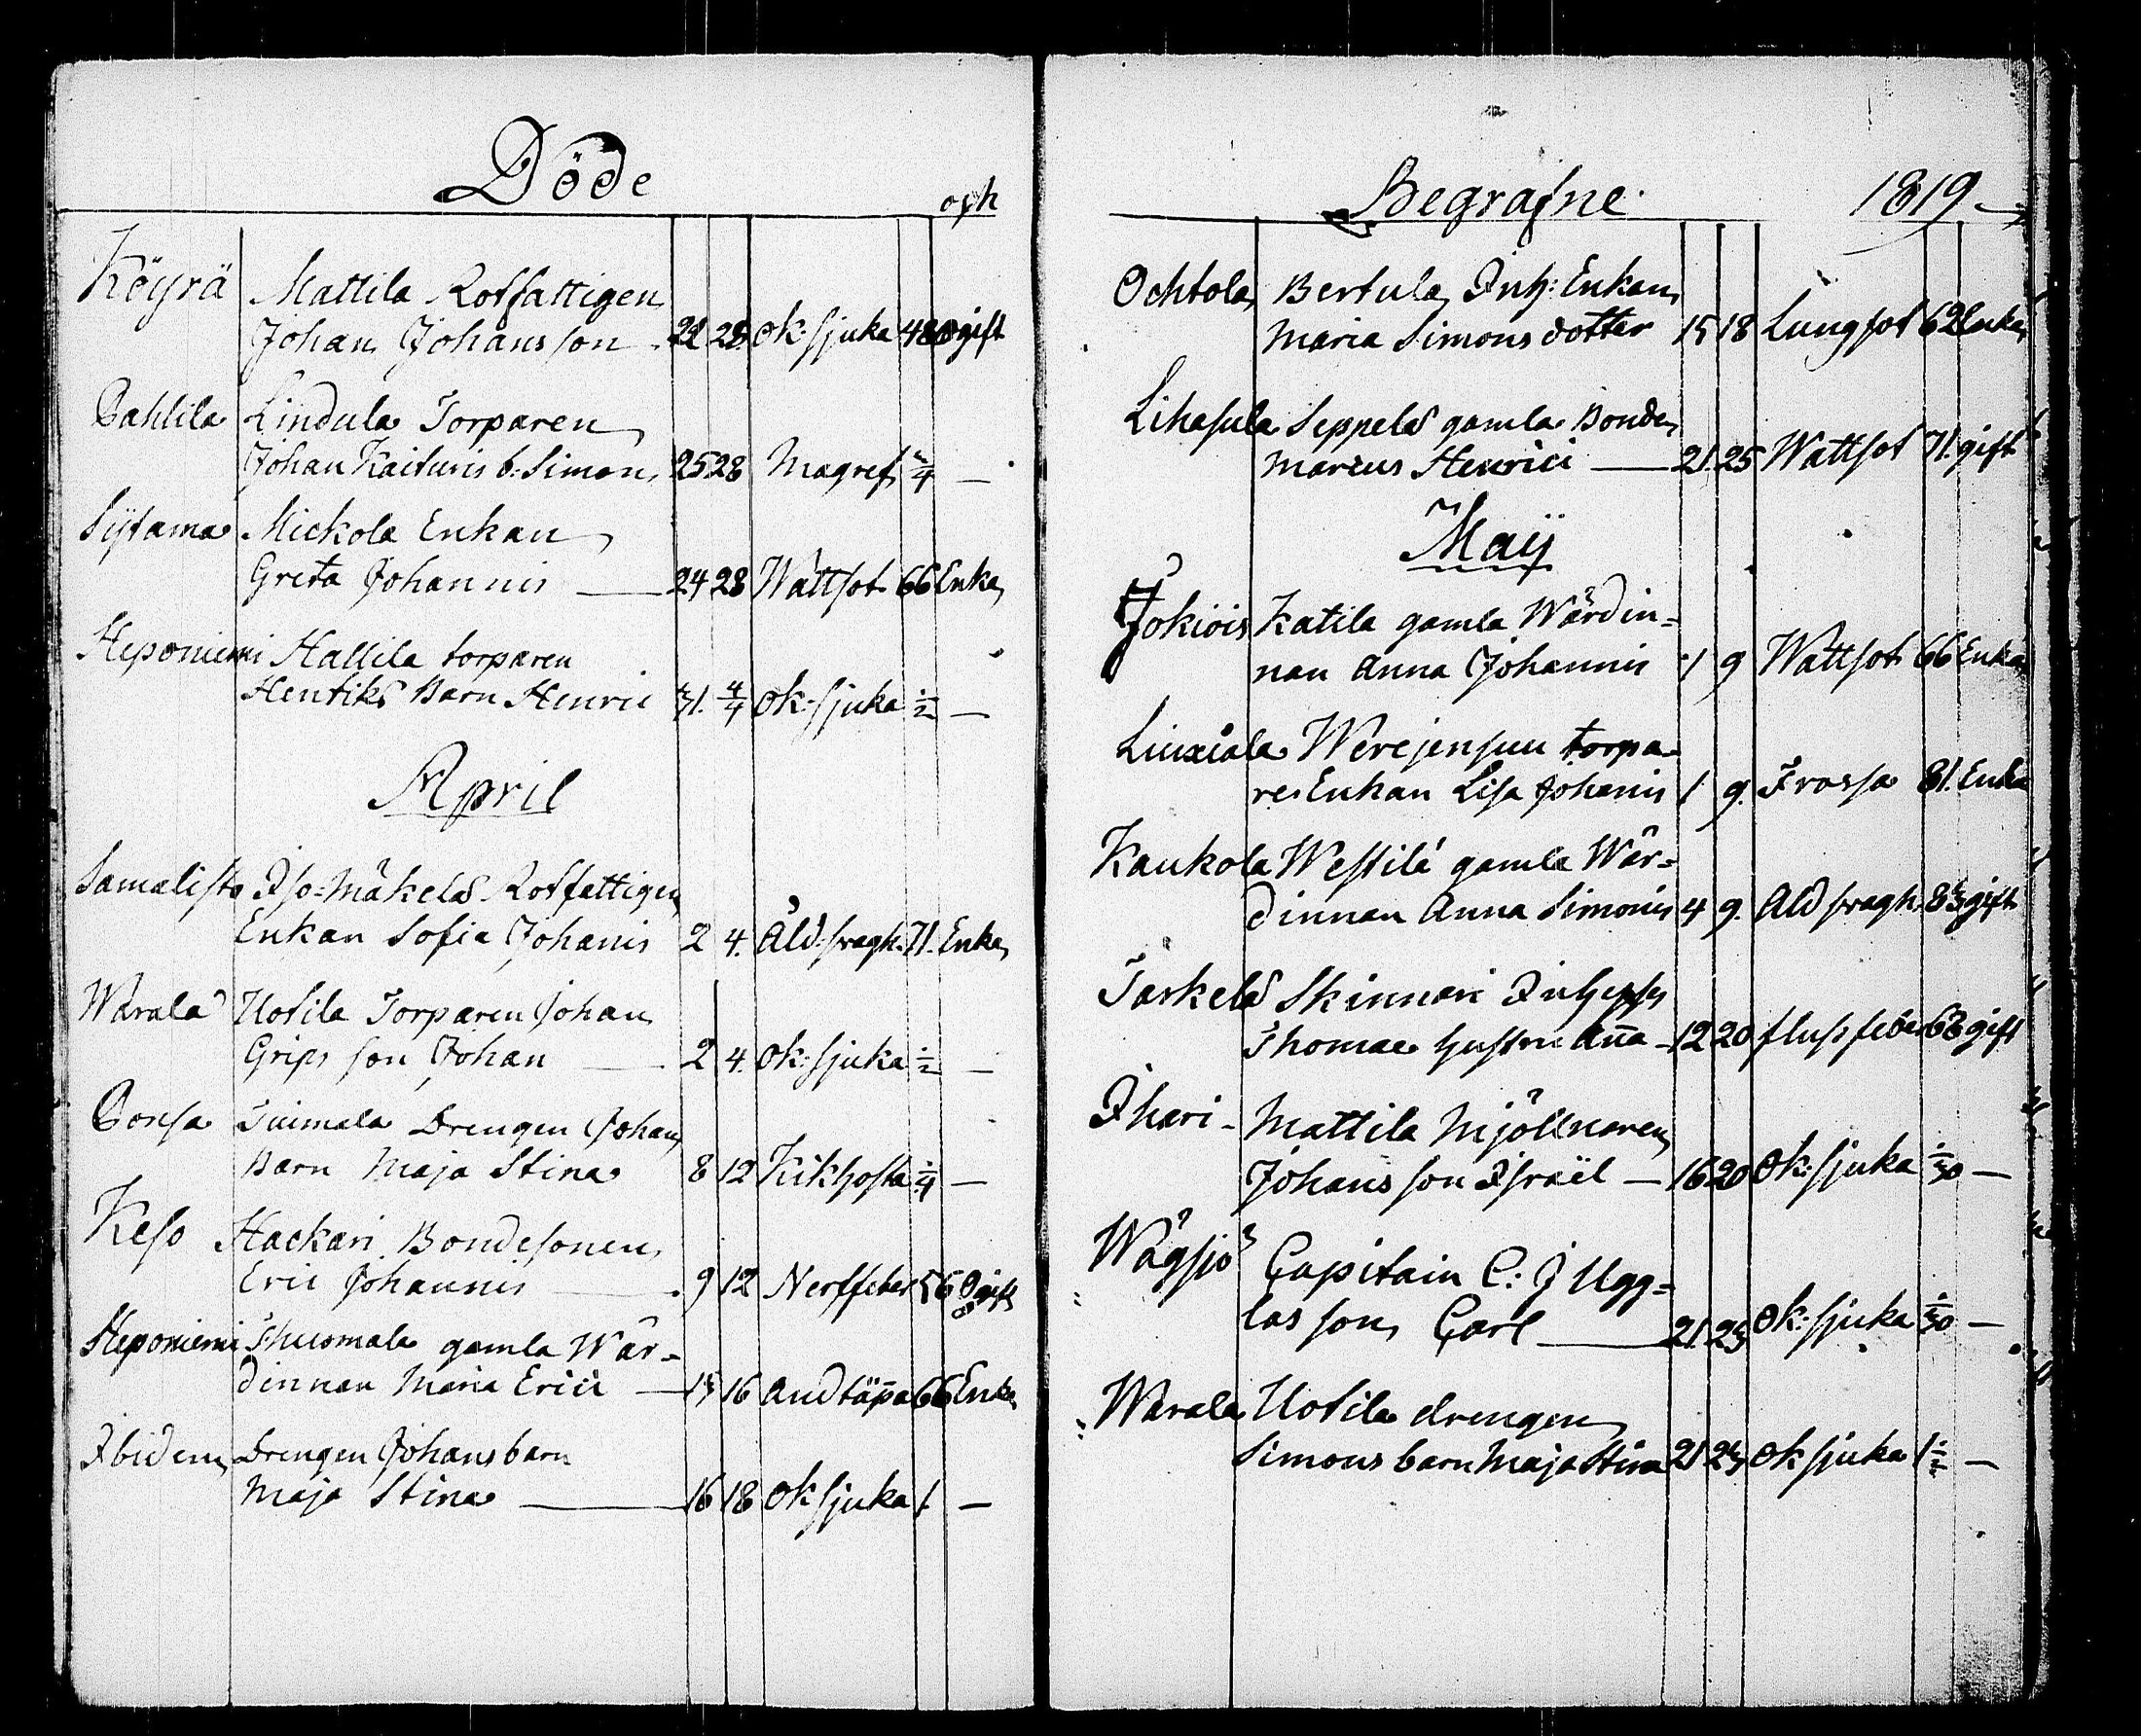 Döde och
Köyrä Mattila Rotfattigen
Johan Johansson 22 28 Ok: sjuka 48 Ogift
Pahlila Lindula Torparen
Johan Kaituris b: Simon 25 28 Magref
Syfama Mickola Enkan
Greta Johannis — 24 28 Wattsot 66 Enka
Heponiemi Hallila torparen
Henriks Barn Henric 31. 4/4 Ok: sjuka ½ —
April
Samalisto Iso-Mäkelä Rotfattigen
Enkan Sofia Johanis 2 4. Åld: svagh. 71. Enka
Warala Uotila Torparen Johan
Grips son Johan — 2 4. Ok: sjuka ½ —
Ponsa Tuimala Drengen Johan
Barn Maja Stina 8 12 Kikhosta ¼ —
Keso Hackari Bondesonen
Eric Johannis — 9 12 Nerffeber 56 Ogift
Heponiemi Thusmala gamla Wär-
dinnan Maria Erici — 13 16 Andtäpa 66 Enka
Ibidem Drengen Johans barn
Maja Stina — 16 18 Ok sjuka 1. —
Begrafne. 1819
Ochtola Bertula Inh: Enkan
Maria Simons dotter 15 18 Lungsot 62 Enka
Lihasula Seppelä gamla Bonden
Marcus Henrici — 21. 25 Wattsot 71. gift
Maij
Jokiois Katila gamla Wärdin-
nan Anna Johannis 1 9 Wattsot 66 Enka
Liuxiala Werejensuu torpa-
re Enkan Lisa Johanis 1 9. Frossa 81. Enka
Kaukola Westilä gamla Wär-
dinnan Anna Simonis 4 9. Åld svagh. 83 gift
Taskelä Skinnari Inhyses
Thomae hustru Aña 12 20 flussfeber 68 gift
Ihari - Mattila Mjöllnaren
Johans son Israël — 16 20 Ok: sjuka 1/30 —
Wågsjö Capitain C: J Ugg-
las son Carl — 21. 23 Ok: sjuka 1/30 —
Warala Uotila drengen
Simons barn Maja Stina 21 23 Ok sjuka 1½ —